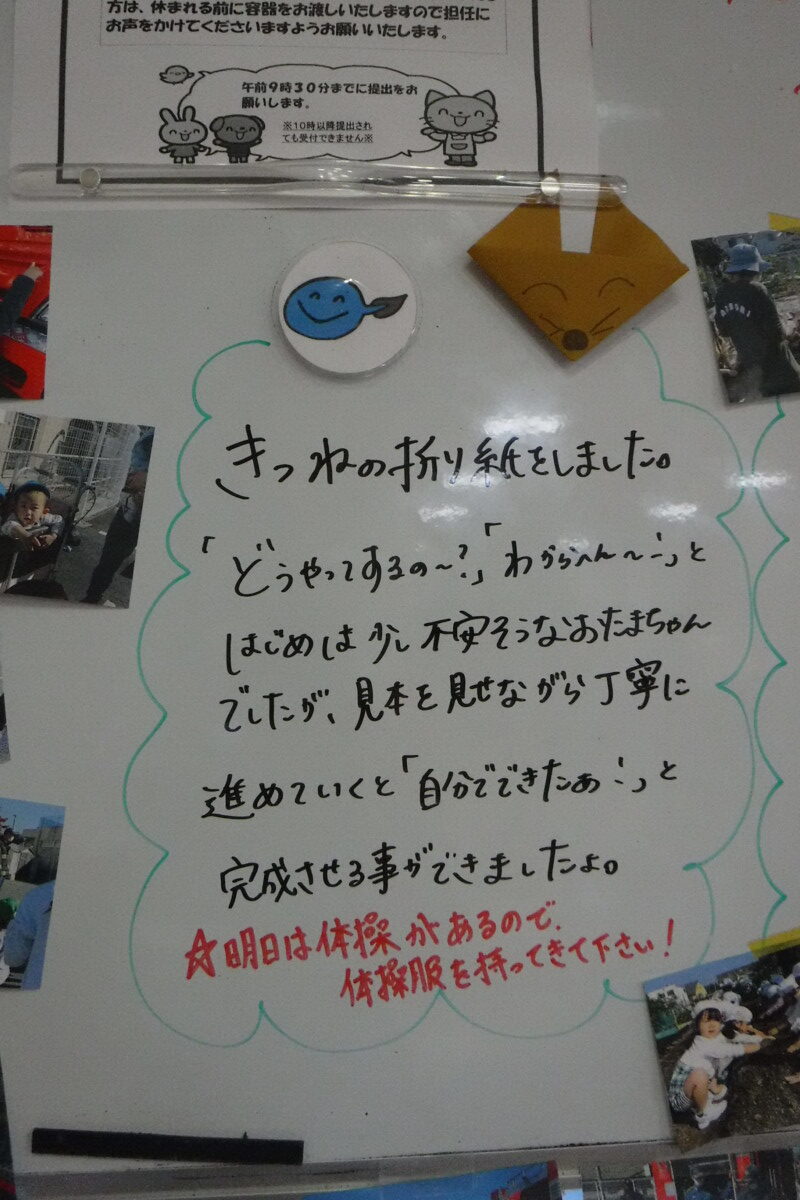 方は、休まれる前に容器をお渡しいたしますので担任に
お声をかけてくださいますようお願いいたします。
午前9時30分までに提出をお
願いします。
※10時以降提出され
ても受付できません※
きつねの折り紙をしました。
「どうやってするの〜?」「わからへん〜!」と
はじめは少し不安そうなおたまちゃん
でしたが、見本を見せながら丁寧に
進めていくと「自分でできたぁ!」と
完成させる事ができましたよ。
☆明日は体操があるので、
体操服を持ってきて下さい!